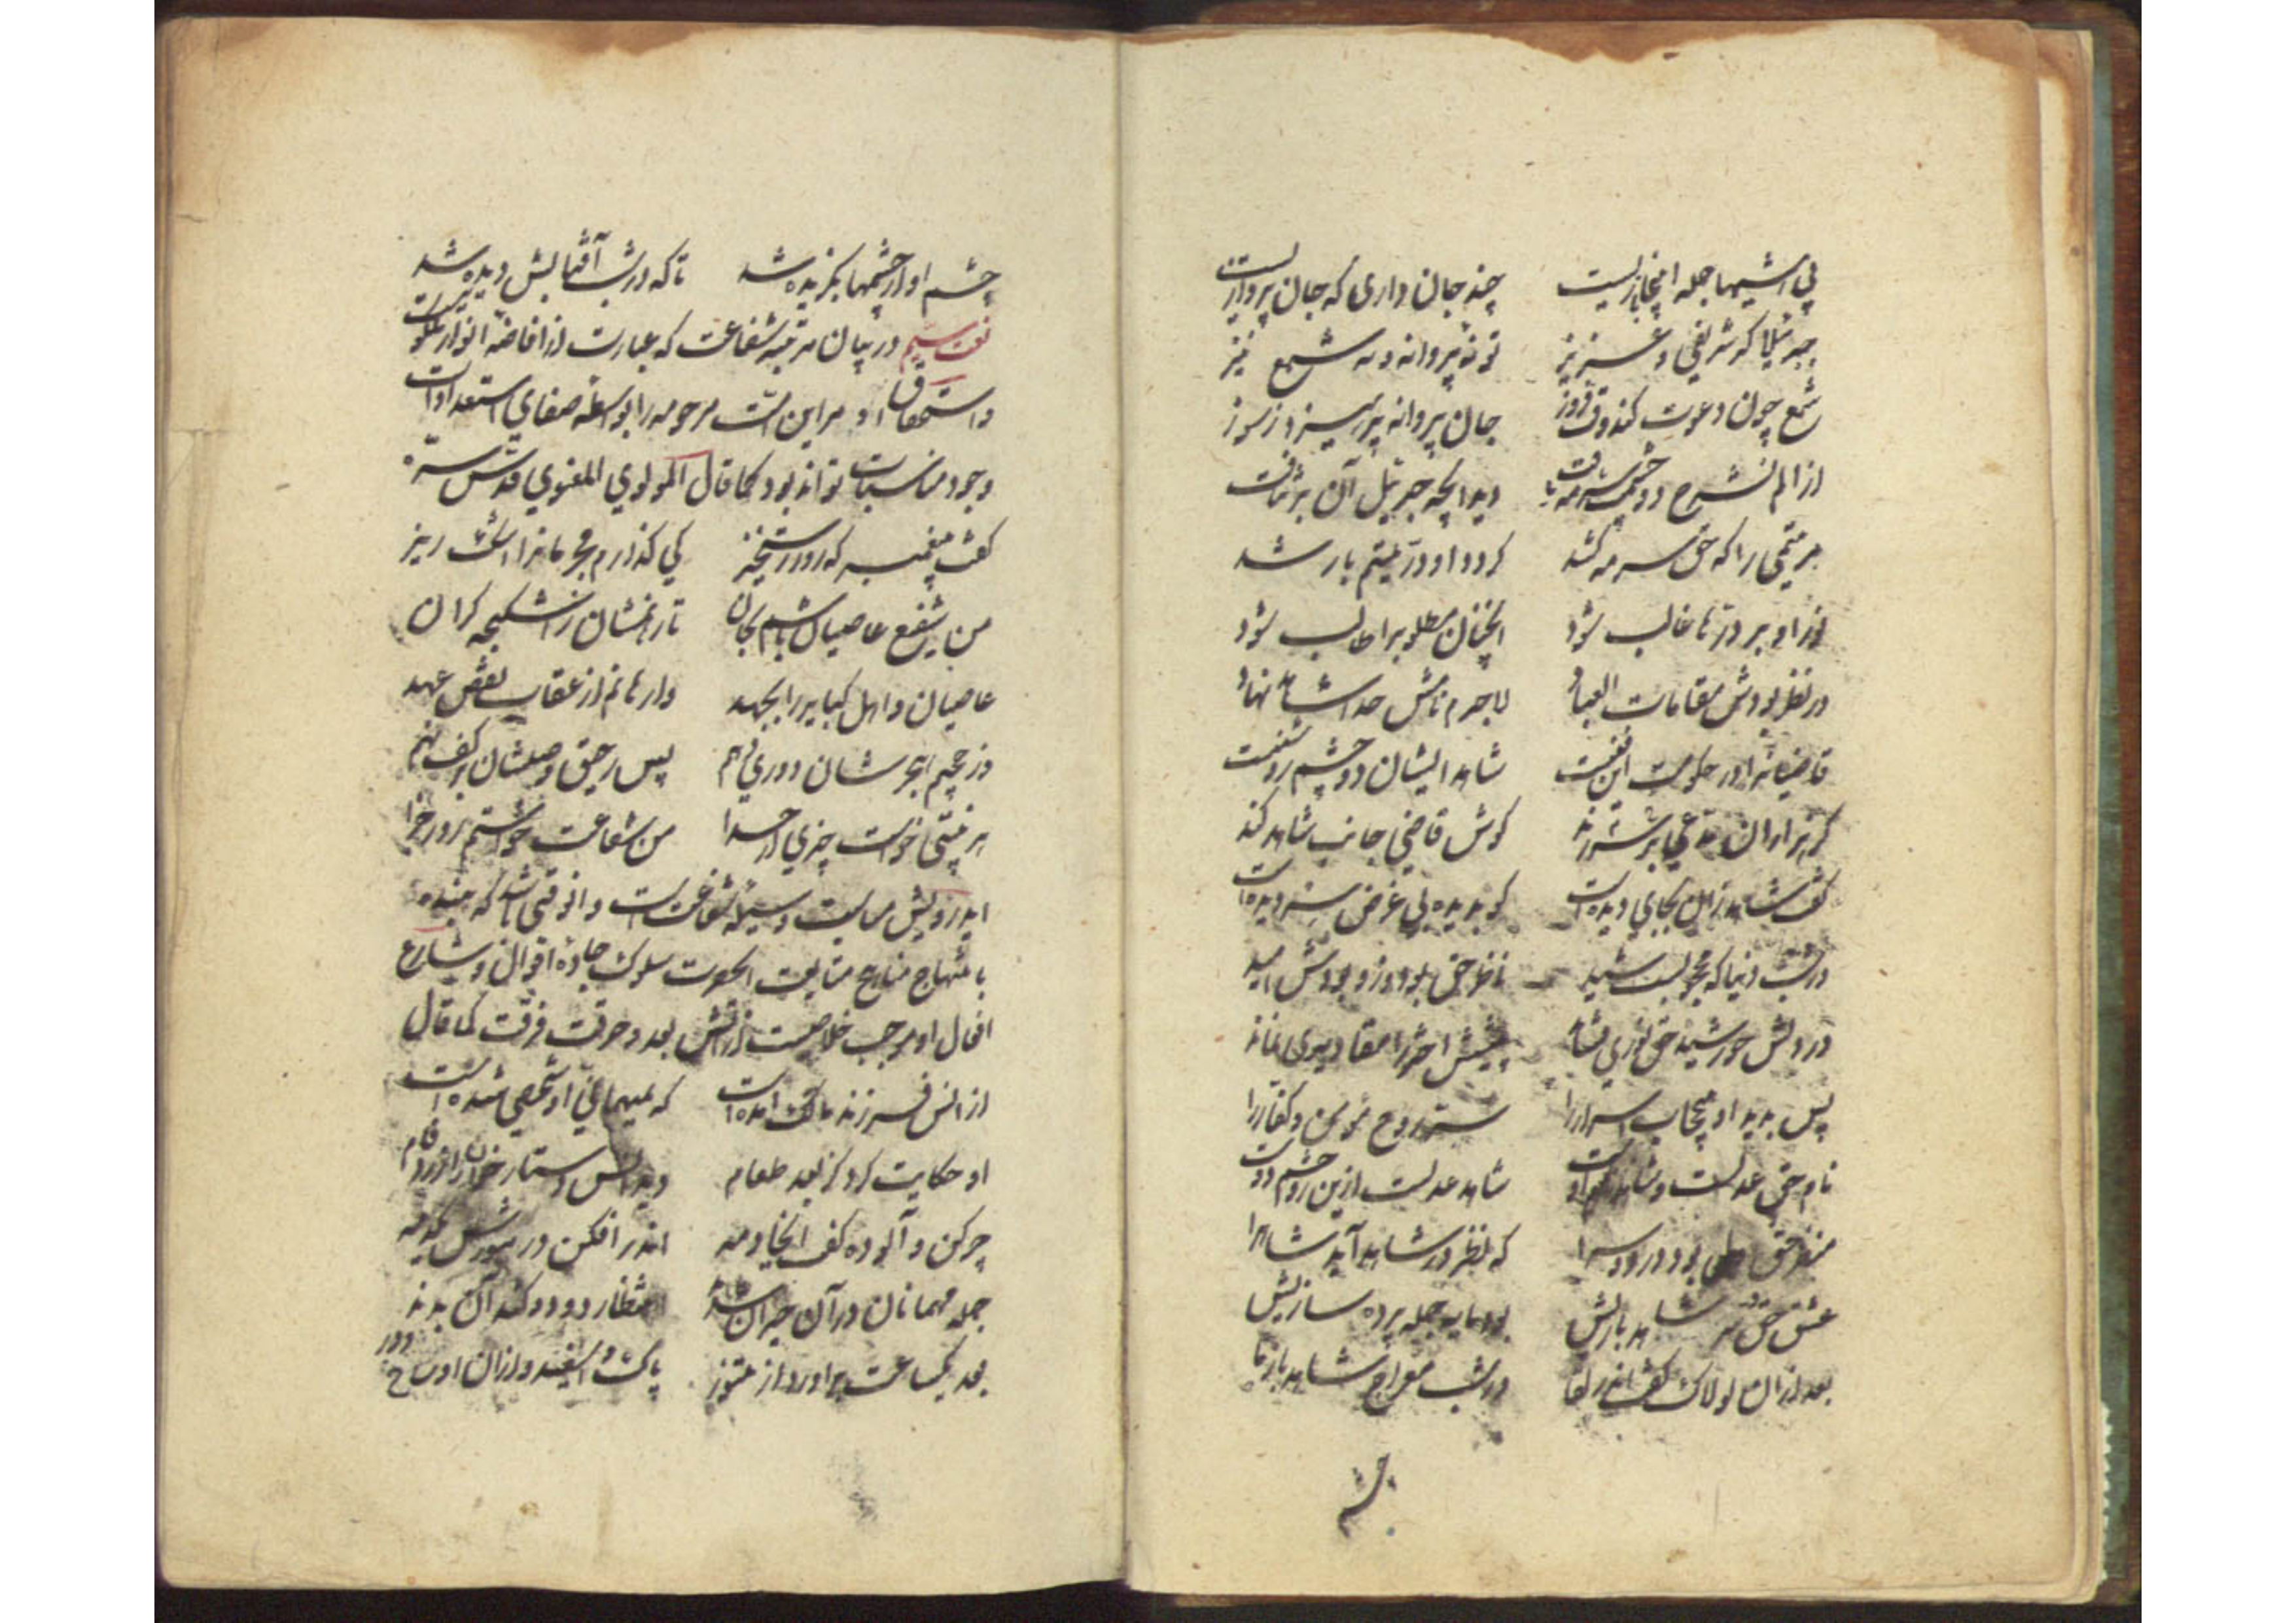 بی هشیها جمله اینجا بازیست چند جان داری که جان پردازیست
جبرئیلا گر شریفی و عزیز تو نه پروانه و نه شمع نیز
شمع چون دعوت کند وقت فروز جان پروانه نپرهیزد ز سوز
از الم نشرح دو چشمش سرمه یافت دید آنچه جبرئیل آن بر نتافت
مر یتیمی را که حق سرمه کشد گردد او در یتیم با رشد
نور او بر درها غالب شود آنچنان مطلوب را طالب شود
در نظر بودش مقامات العباد لاجرم نامش خدا شاهد نهاد
قاضیانرا در حکومت این فنست شاهد ایشان دو چشم روشنست
گر هزاران مدعی سر برزند گوش قاضی جانب شاهد کند
گفت شاهد زان بجای دیده است کو بدیده بی غرض سر دیده است
در شب دنیا که محجوبست شید ناظر حق بود و زو بودش امید
در دلش خورشید حق نوری نشاند پیشش اختر را مقادیری نماند
پس بدید او بی حجاب اسرار را سیر روح مؤمن و کفار را
نام حق عدلست و شاهد آن اوست شاهد عدلست ازین رو چشم دوست
منظر حق دل بود در دو سرا که نظر در شاهد آید شاه را
عشق حق و سر شاهد بازیش بود مایه جمله پرده سازیش
بعد از آن لولاک گفت اندر لقا در شب معراج شاهد باز ما
چشم
چشم او از چشمها بگزیده شد تا که در شب آفتابش دیده شد
نعت سیم در بیان مرتبه شفاعت که عبارت از افاضه انوار نبوت است
و استحقاق او مر این امت مرحومه را بواسطه صفای استعدادات
وجود مناسبات تواند بود کما قال المولوی المعنوی قدس سره
گفت پیغمبر که روز رستخیز کی گذارم مجرمانرا اشک ریز
من شفیع عاصیان باشم بجان تا رهانمشان ز اشکنجه گران
عاصیان و اهل کبایر را بجهد وا رهانم از عقاب نقض عهد
از جحیم هجرشان دوری دهم پس رحیق وصلشان بر کف نهم
هر نبیی خواست چیزی از خدا من شفاعت خواستم روز جزا
ایدرویش متابعت وسیله شفاعتست و آن وقتی باشد که بنده
با منهاج مناهج متابعت آنحضرت سلوک جاده اقوال و شارع
افعال او موجب خلاصیست از آتش بعد و حرقت فرقت کما قال
از انس فرزند مالک آمده است که بمهمانی او شخصی شده است
او حکایت کرد کز بعد طعام دید انس دستار خوان را زرد فام
چرکن و آلوده گفت ای خادمه اندر افکن در تنورش یکدمه
جمله مهمانان در آن حیران شدند انتظار دود کندو آن بدند
بعد یکساعت بر آورد از تنور پاک و اسفید و از آن اوساخ دور